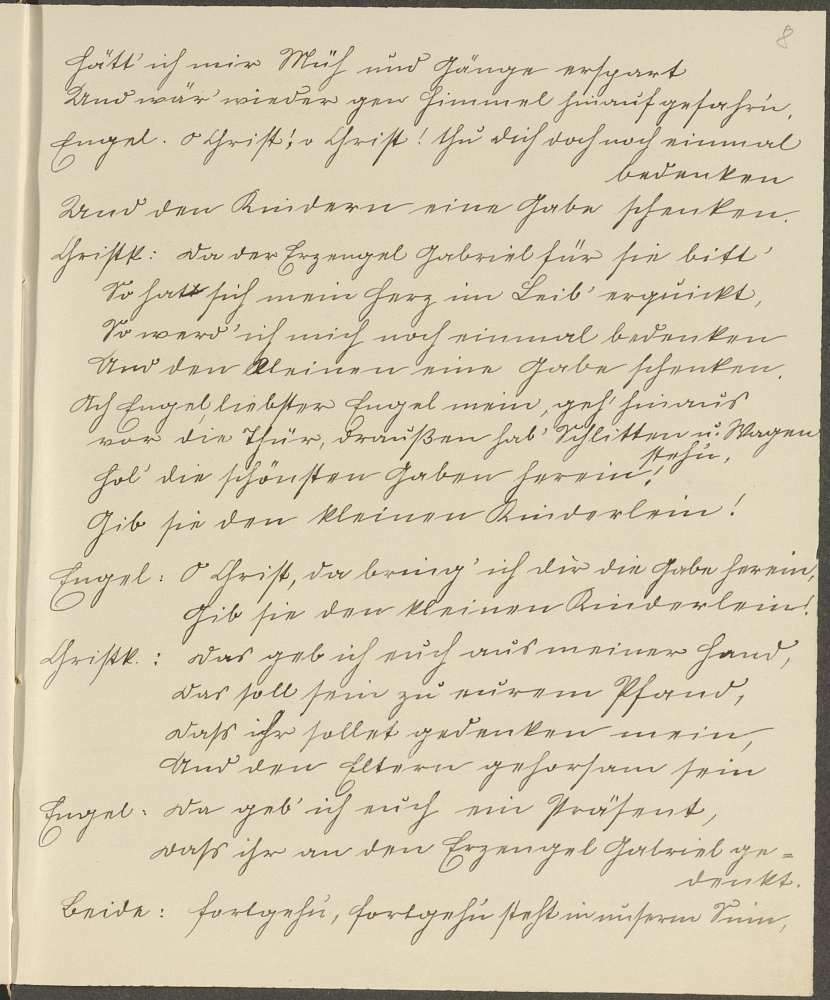 8
hätt' ich mir Müh und Gänge erspart
Und wär' wieder gen Himmel hinaufgefahr'n.
Engel. O Christ! o Christ! thu dich doch noch einmal
bedenken
Und den Kindern eine Gabe schenken.
Christk: Da der Erzengel Gabriel für sie bitt'
So hat sich mein Herz im Leib' erquickt,
So werd' ich mich noch einmal bedenken
Und den kleinen eine Gabe schenken.
Ach Engel, liebster Engel mein, geh' hinaus
vor die Thür, draußen hab' Schlitten u. Wagen
steh'n,
hol' die schönsten Gaben herein!
Gib sie den kleinen Kinderlein!
Engel: O Christ, da bring' ich dir die Gabe herein,
Gib sie den kleinen Kinderlein!
Christk.: Das geb ich euch aus meiner Hand,
Das soll sein zu eurem Pfand,
Dass ihr sollet gedenken mein,
Und den Eltern gehorsam sein
Engel: Da geb' ich euch ein Präsent,
Dass ihr an den Erzengel Gabriel ge=
denkt.
Beide: Fortgeh'n, fortgeh'n steht in unserm Sinn,